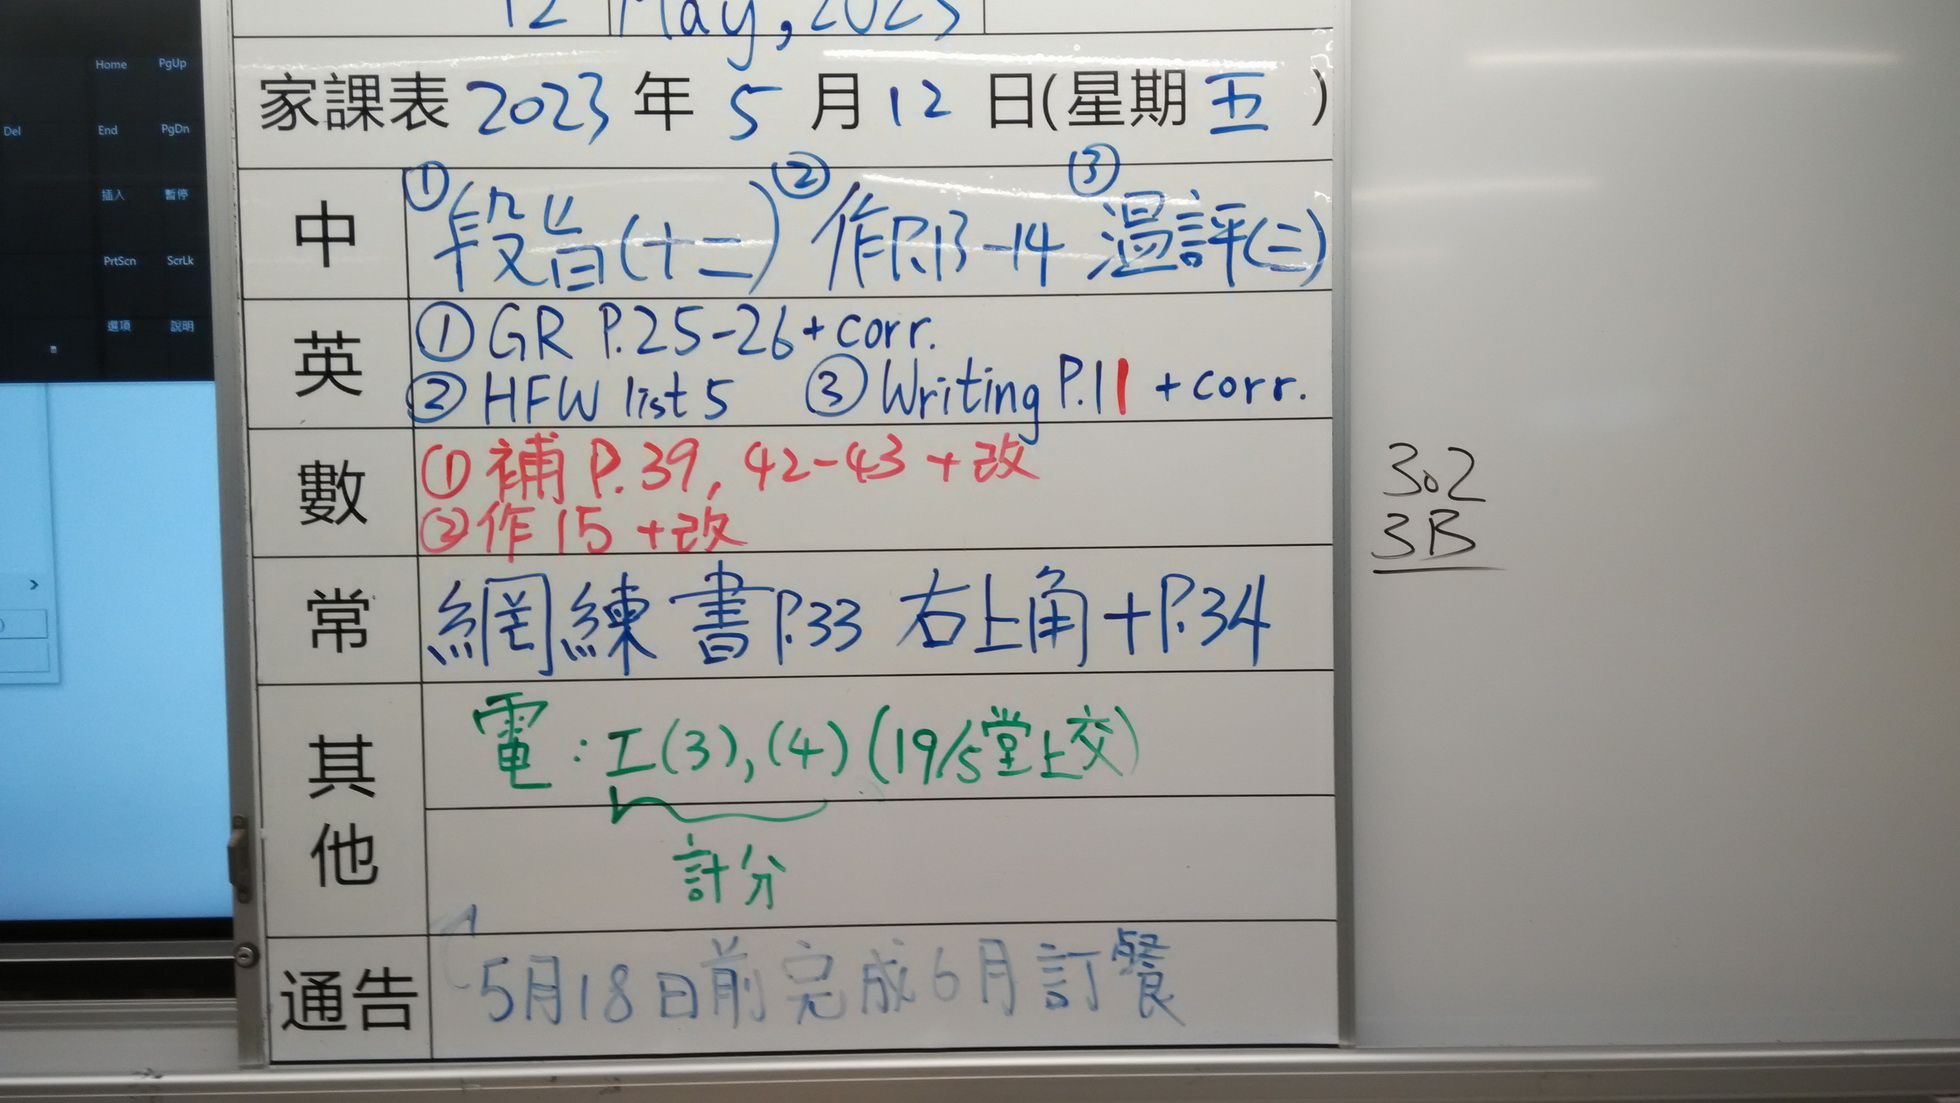 12 May, 2023
家課表 2023 年 5 月 12 日(星期 五 )
中 ① 段旨(十二) ② 作P.13-14 ③ 溫評(二)
英 ① GR P.25-26 + corr.
② HFW list 5 ③ Writing P.11 + corr.
數 ① 補 P.39, 42-43 + 改
② 作 15 + 改
常 網練 書P.33 右上角+P.34
其他 電:工(3),(4) (19/5堂上交)
計分
通告 5月18日前完成6月訂餐
302
3B
Home PgUp
Del End PgDn
插入 暫停
PrtScn ScrLk
選項 說明